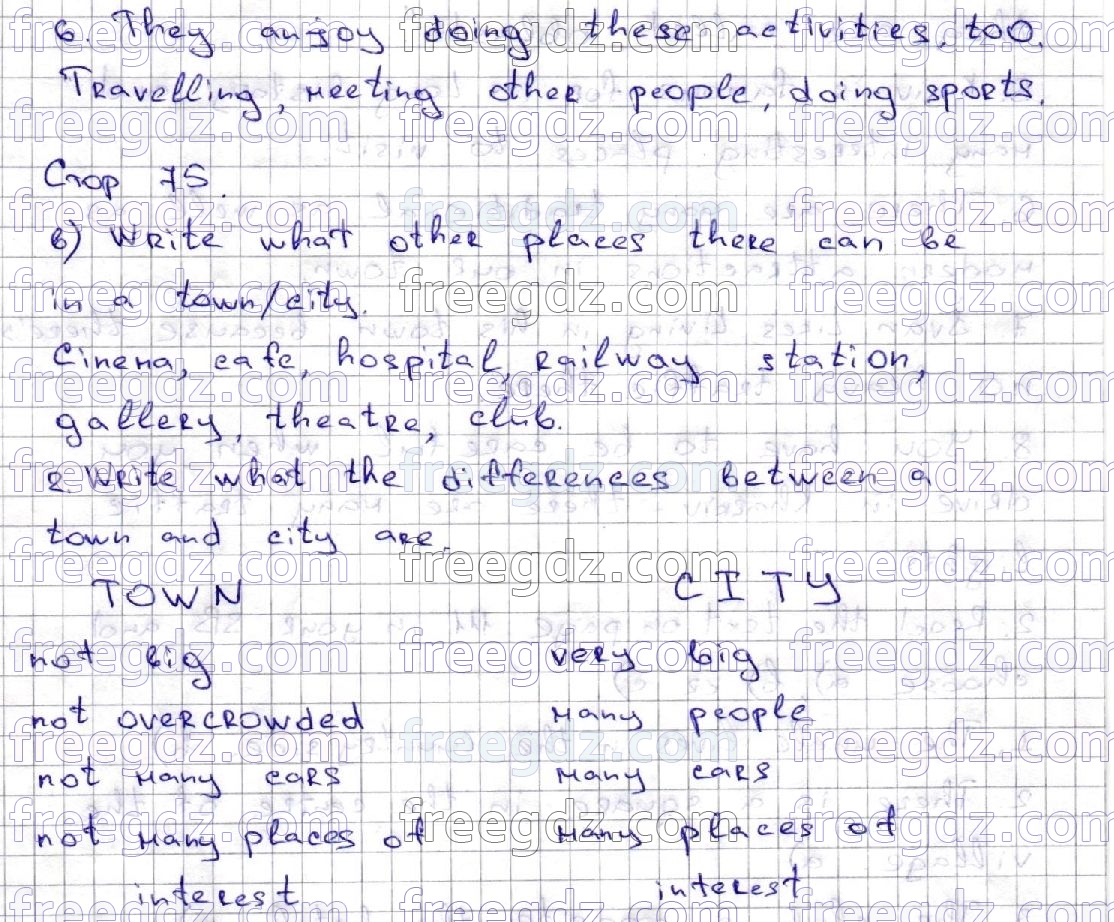 6. They anjoy doing these activities, too.
Travelling, meeting other people, doing sports.
Стор 75.
в) Write what other places there can be
in a town/city.
Cinema, cafe, hospital, railway station,
gallery, theatre, club.
2. Write what the differences between a
town and city are.
TOWN CITY
not big very big
not overcrowded many people
not many cars many cars
not many places of many places of
interest interest
freegdz.com